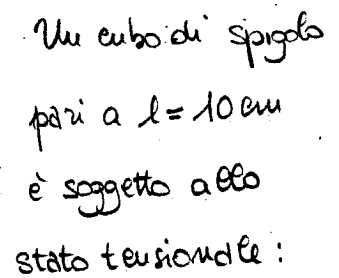 Un cubo di spigolo
pari a l = 10 cm
è soggetto allo
stato tensionale :